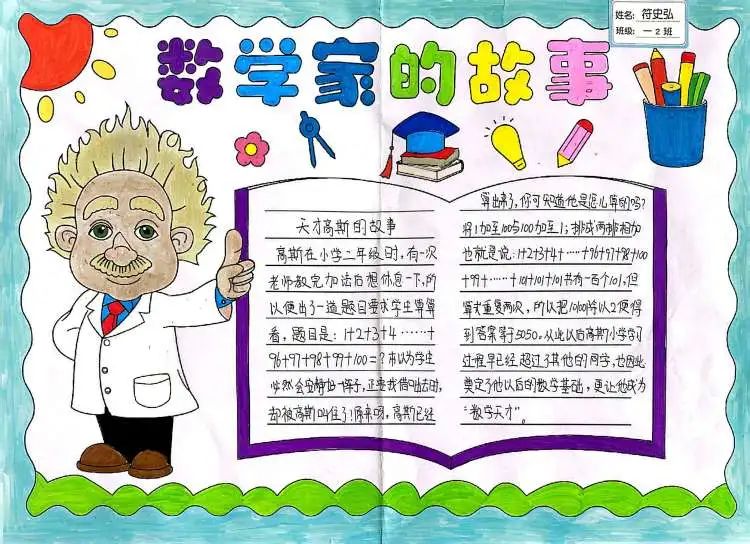 姓名：符史弘
班级：一2班
数学家的故事
天才高斯的故事
高斯在小学二年级时，有一次
老师教完加法后想休息一下，所
以便出了一道题目要求学生算算
看，题目是：1+2+3+4……+
96+97+98+99+100=？本以为学生
必然会安静好一阵子，正要找借口出去时，
却被高斯叫住了！原来呀，高斯已经
算出来了，你可知道他是怎么算的吗？
将1加至100与100加至1；排成两排相加
也就是说：1+2+3+4+……+96+97+98+100
+99+……+101+101+101共有一百个101，但
算式重复两次，所以把10100除以2便得
到答案等于5050。从此以后高斯小学学习
过程早已经超过了其他的同学，也因此
奠定了他以后的数学基础，更让他成为
“数学天才”。